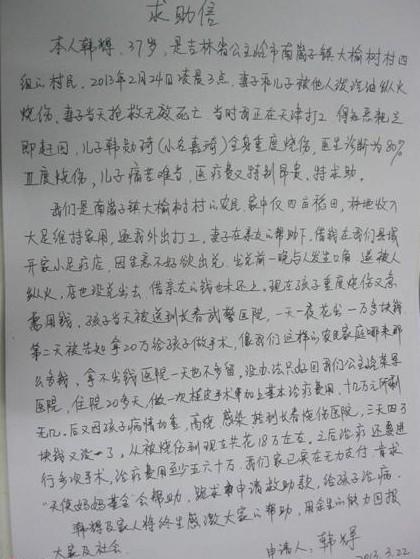 求助信
本人韩辉，37岁，是吉林省公主岭市南崴子镇大榆树村四
组的村民，2013年2月24日凌晨3点，妻子和儿子被他人泼汽油纵火
烧伤，妻子当天抢救无效死亡，当时我正在天津打工，得知恶耗立
即赶回，儿子韩勋琦（小名嘉琦）全身重度烧伤，医生诊断为80%
Ⅲ度烧伤，儿子病苦难当，医疗费又特别昂贵，特求助。
我们是南崴子镇大榆树村的农民，家中仅四亩稻田，种地收入
不足维持家用，逐我外出打工，妻子在亲友的帮助下，借钱在我们县城
开家小足疗店，因生意不好欲出兑，出兑前一晚与人发生口角，遂被人
纵火，店也没兑出去，借亲友的钱也未还上。现在孩子重度烧伤又急
需用钱，孩子当天被送到长春武警医院，一天一夜花出一万多块钱
第二天被告知拿20万给孩子做手术，像我们这样的农民家庭哪来那
么多钱，拿不出钱医院一天也不多留，没办法只好回我们公主岭某某
医院，住院20多天，做一次植皮手术再加上基本治疗费用，十几万所剩
无几。后又因孩子病情加重，高烧，感染，转到长春烧伤医院，三天四万
块钱又没了，从被烧伤到现在共花18万左右，之后治疗还要进
行多次手术，治疗费用至少五六十万，我们家已实在无力支付，肯求
“天使妈妈基金”会帮助，现来申请救助款，给孩子治病。
韩辉及家人将终生感激大家的帮助，用余生的能力回报
大家及社会。
申请人：韩辉
2013.3.22